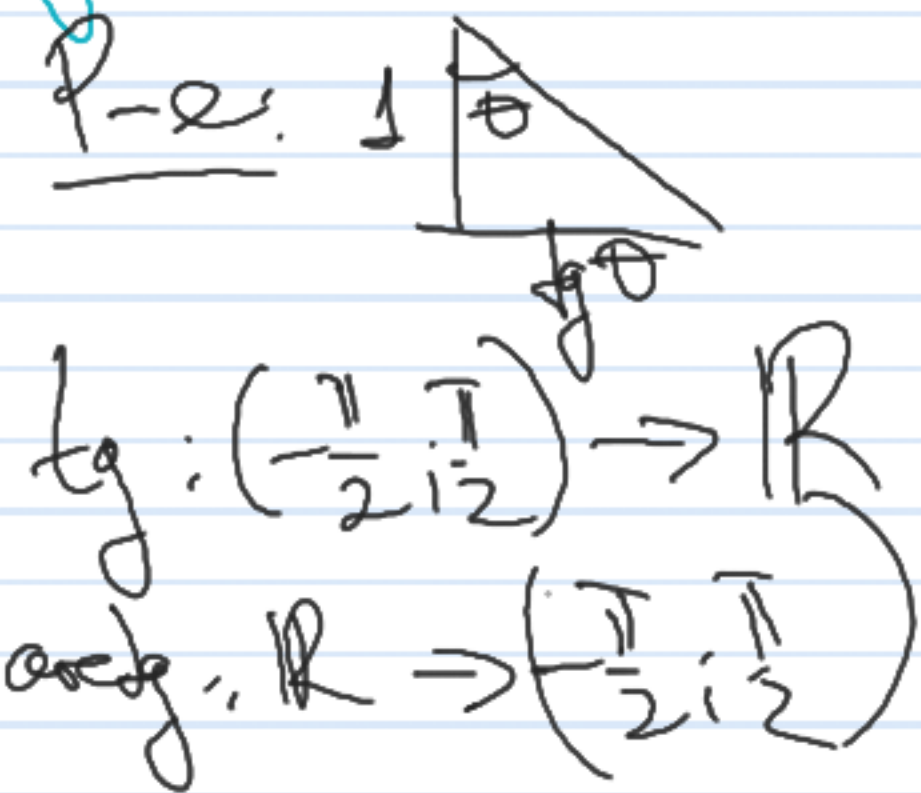 P-e: 1 θ
tgθ
tg : (-π/2 ; π/2) → ℝ
arctg : ℝ → (-π/2 ; π/2)